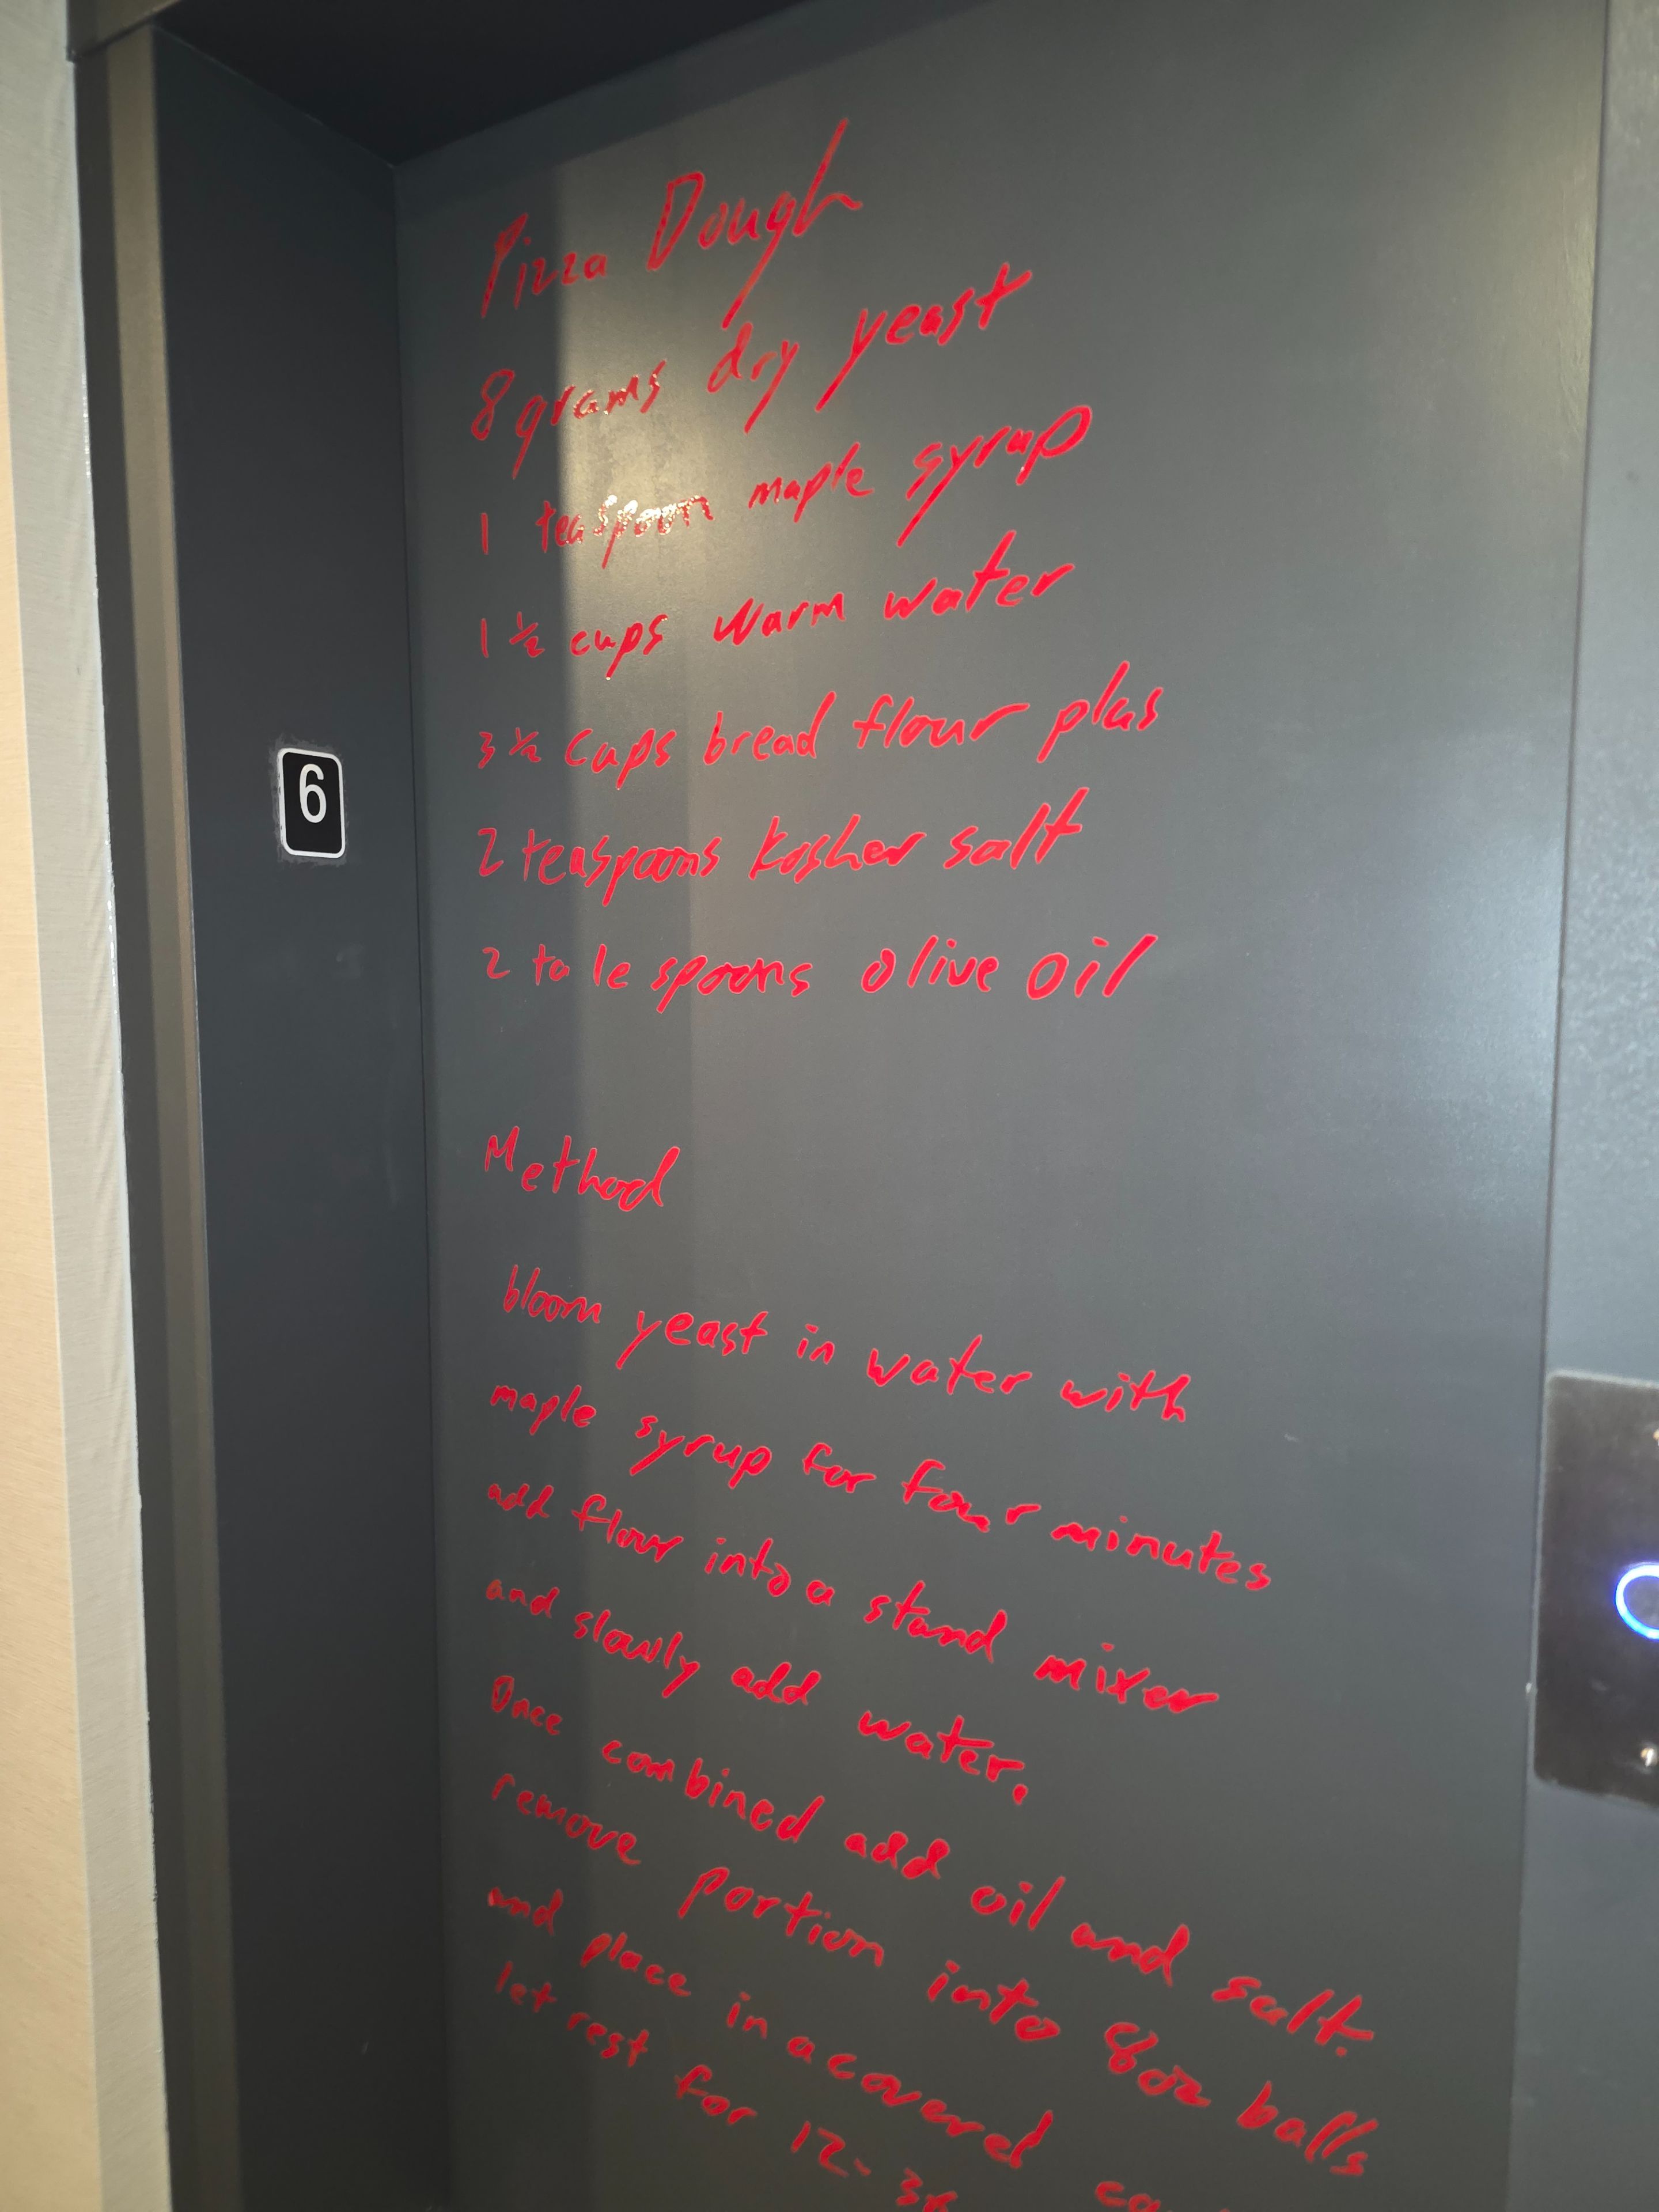 Pizza Dough
8 grams dry yeast
1 teaspoon maple syrup
1 ½ cups warm water
3 ½ cups bread flour plus
6
2 teaspoons kosher salt
2 ta le spoons olive oil
Method
bloom yeast in water with
maple syrup for four minutes
add flour into a stand mixer
and slowly add water.
Once combined add oil and salt.
remove portion into 8oz balls
and place in a covered
let rest for 12-